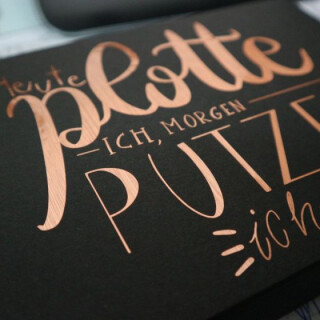 Heute
plotte
ICH, MORGEN
PUTZE
ich